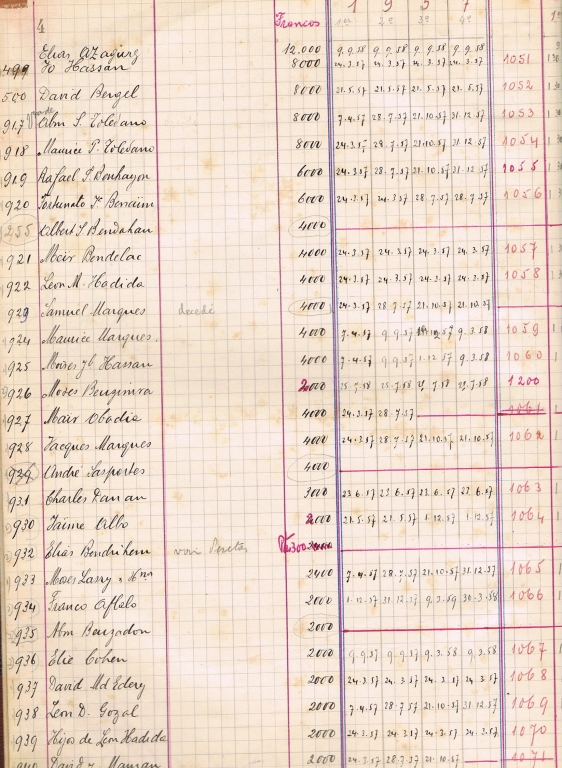 4 Francos 1 9 5 7
1ro 2º 3º 4º
Elias Azagury 12.000 9.9.58 9.9.58 9.9.58 9.9.58
499 Yo Hassan 8000 24.3.57 24.3.57 24.3.57 24.3.57 1051
500 David Bergel 8000 21.5.57 21.5.57 21.5.57 21.5.57 1052
917 Abm S. Toledano 8000 7.4.57 28.7.57 21.10.57 31.12.57 1053
918 Maurice P. Toledano 8000 24.3.57 28.7.57 21.10.57 31.12.57 1054
919 Rafael S. Benhayon 6000 24.3.57 28.7.57 21.10.57 31.12.57 1055
920 Fortunato Benaim 6000 24.3.57 24.3.57 28.7.57 28.7.57 1056
1255 Albert S Bendahan 4000
921 Meir Bendelac 4000 24.3.57 24.3.57 24.3.57 24.3.57 1057
922 Leon M. Hadida 4000 24.3.57 24.3.57 24.3.57 24.3.57 1058
923 Samuel Marques decedé 4000 24.3.57 28.7.57 21.10.57 21.10.57
924 Maurice Marques. 4000 7.4.57 9.9.57 9.3.58 1059
925 Moises Hassan 4000 7.4.57 9.9.57 1.12.57 9.3.58 1060
926 Moses Benzimra 2000 25.7.58 25.7.58 25.7.58 25.7.58 1200
927 Mair Obadia 4000 24.3.57 28.7.57 1061
928 Jacques Marques 4000 24.3.57 28.7.57 21.10.57 21.10.57 1062
929 André Lasportes 4000
931 Charles Danan 3000 23.6.57 23.6.57 23.6.57 23.6.57 1063
930 Jaime Albo 2000 21.5.57 21.5.57 1.12.57 1.12.57 1064
932 Elias Bendrihem voir Pesetas
933 Moses Lasry 2400 7.4.57 28.7.57 21.10.57 31.12.57 1065
934 Franco Aflalo 2000 1.12.57 31.12.57 9.3.59 30.3.58 1066
935 Abm Benzadon 2000
936 Elie Cohen 2000 9.9.57 9.9.57 9.3.58 9.3.58 1067
937 David Md Edery 2000 24.3.57 24.3.57 24.3.57 24.3.57 1068
938 Leon D. Gozal 2000 7.4.57 28.7.57 21.10.57 31.12.57 1069
939 Hijos de Leon Hadida 2000 24.3.57 24.3.57 24.3.57 24.3.57 1070
940 David Maman 2000 24.3.57 28.7.57 21.10.57 1071